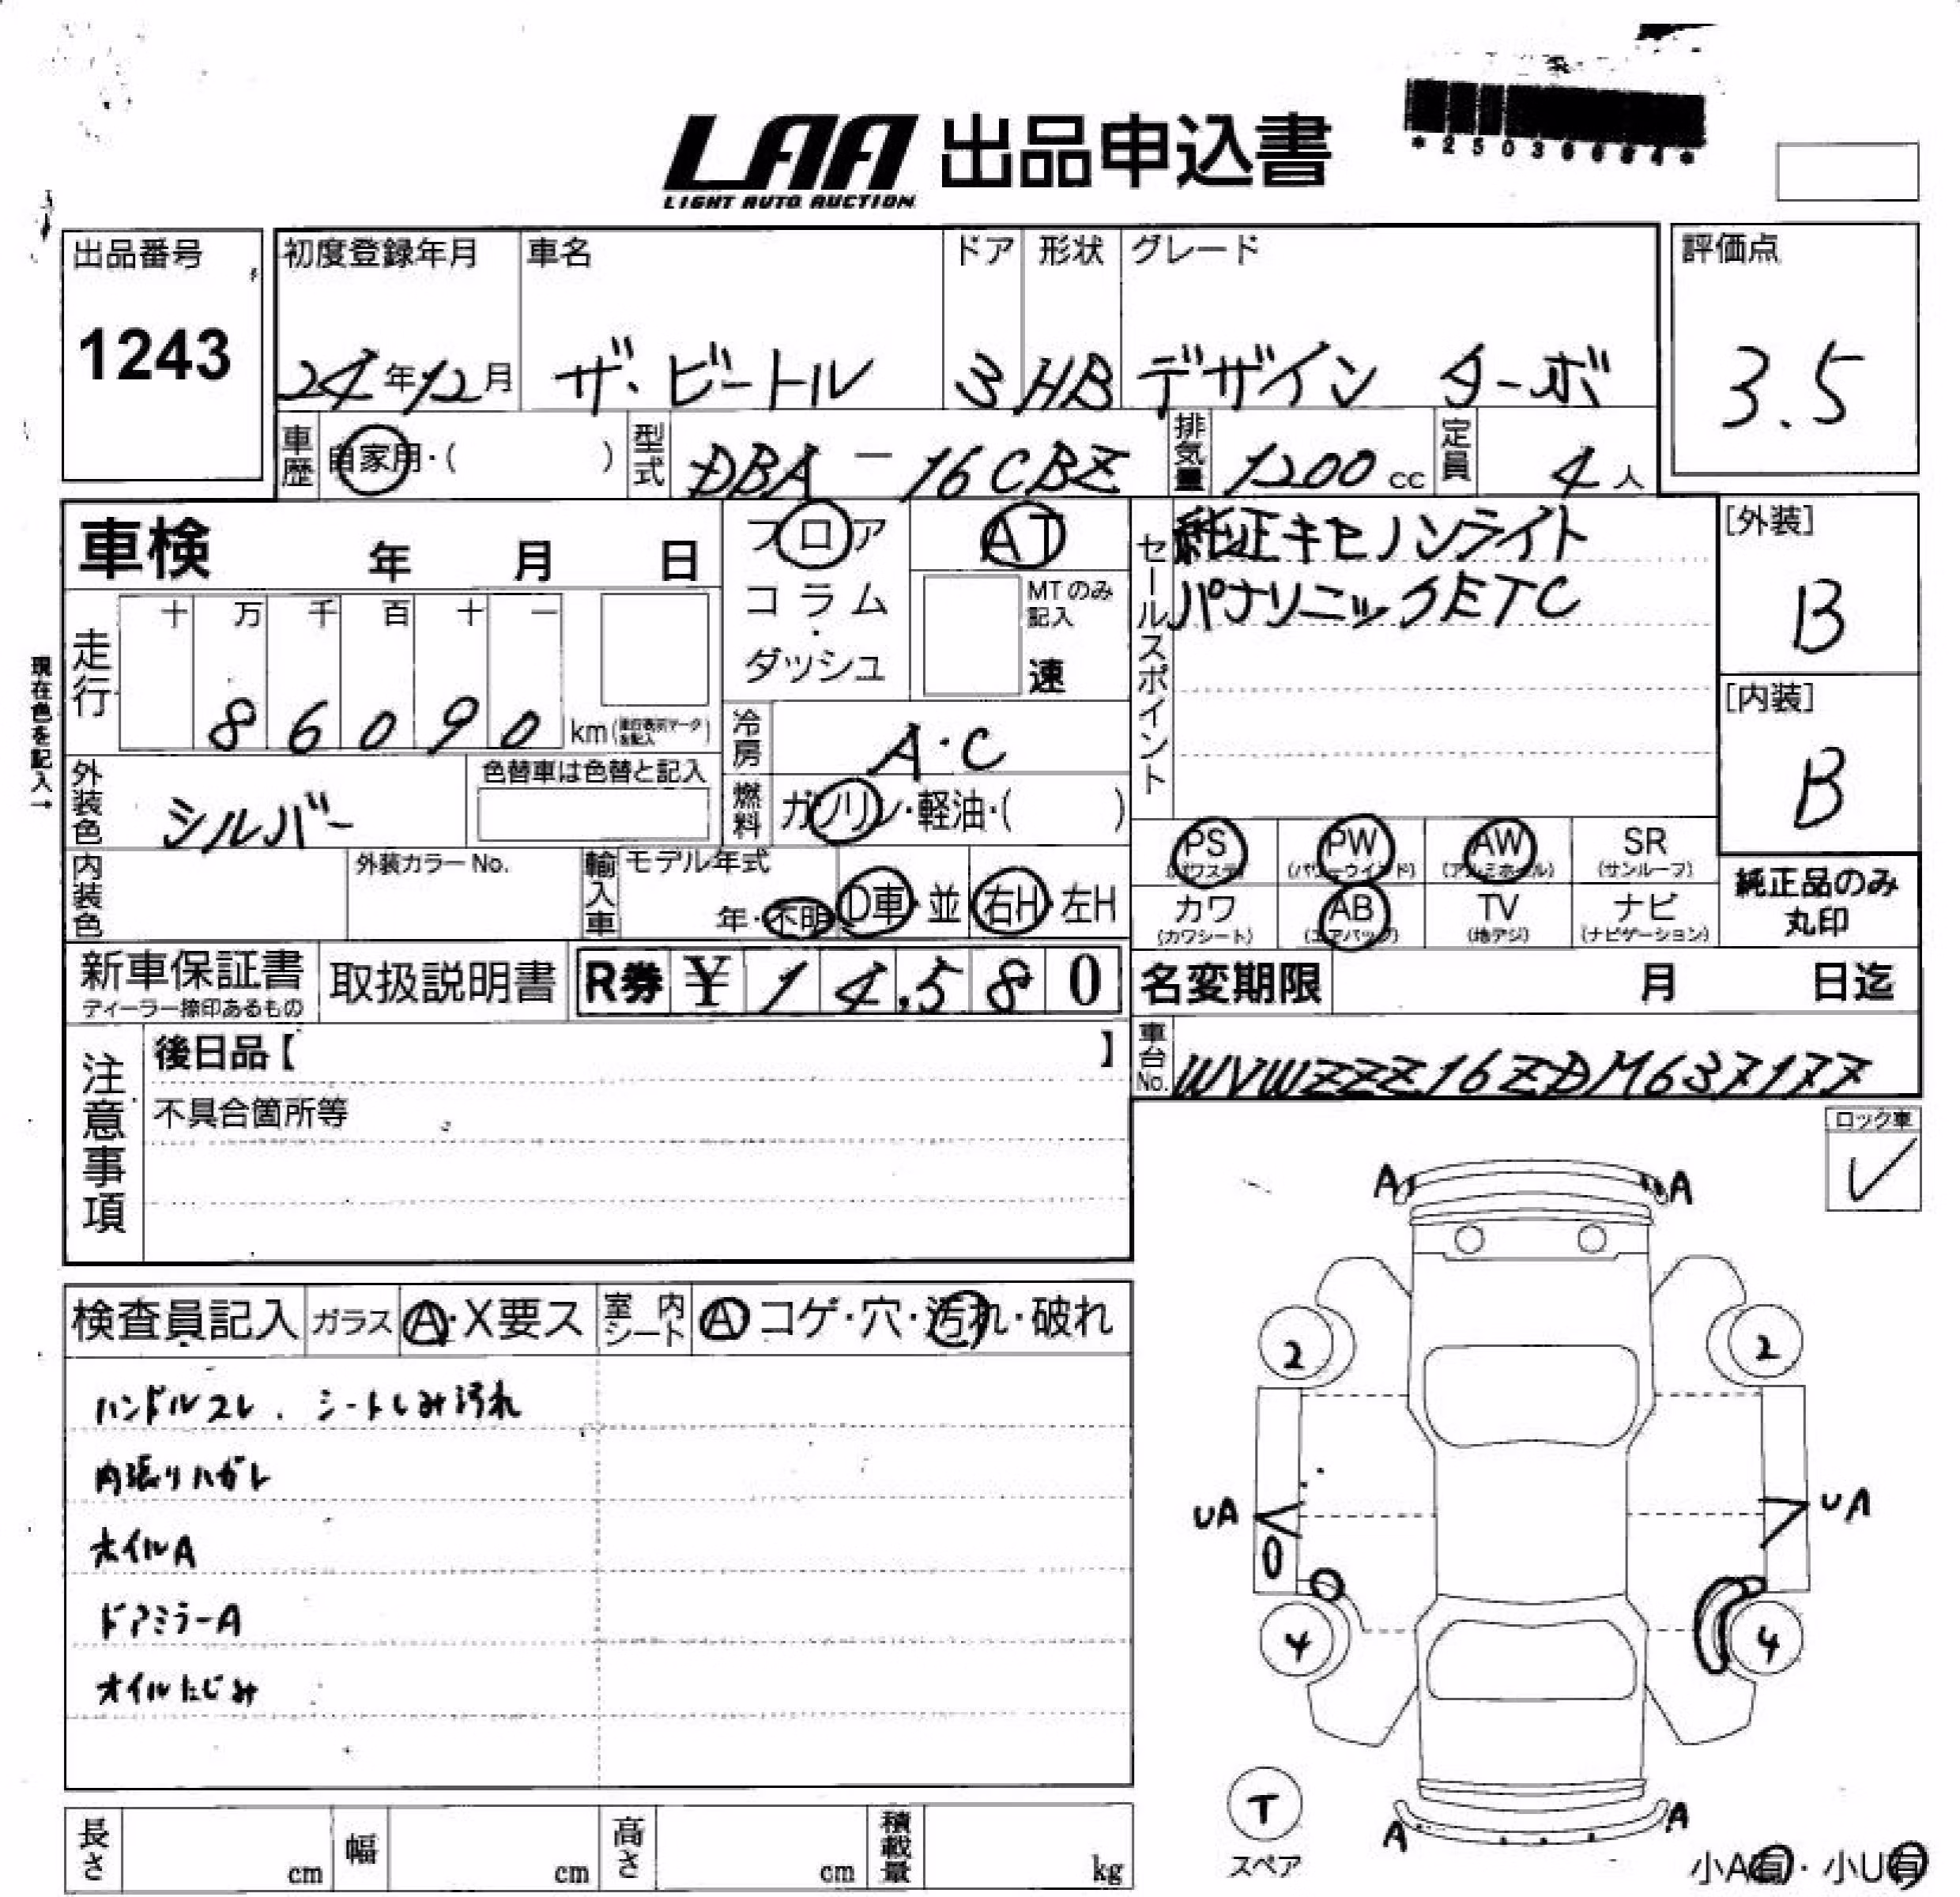 LAA 出品申込書
LIGHT AUTO AUCTION
*25036684*
出品番号
1243
初度登録年月
24年12月
車名
ザ・ビートル
ドア
3
形状
HB
グレード
デザイン ターボ
評価点
3.5
車歴
自家用・( )
型式
DBA-16CBZ
排気量
1200 cc
定員
4人
車検 年 月 日
フロア
コラム
・
ダッシュ
AT
MTのみ
記入
速
セールスポイント
純正キセノンライト
パナソニックETC
[外装]
B
[内装]
B
現在色を記入→
走行
十 万 千 百 十 一
8 6 0 9 0 km
冷房
A・C
外装色
シルバー
色替車は色替と記入
燃料
ガソリン・軽油・( )
内装色
外装カラーNo.
輸入車
モデル年式
年・不明
D車・並
右H・左H
PS
(パワステ)
PW
(パワーウインド)
AW
(アルミホイル)
SR
(サンルーフ)
カワ
(カワシート)
AB
(エアバッグ)
TV
(地デジ)
ナビ
(ナビゲーション)
純正品のみ
丸印
新車保証書
ディーラー捺印あるもの
取扱説明書
R券 ¥ 14,580
名変期限 月 日迄
車台No.
WVWZZZ16ZDM637177
注意事項
後日品【 】
不具合箇所等
ロック車
✓
検査員記入
ガラス
A・X要ス
室内シート
A コゲ・穴・汚れ・破れ
ハンドルスレ. シートしみ汚れ
内張りハガレ
ホイルA
ドアミラーA
オイルにじみ
A A
2 2
UA UA
4 4
T
スペア
A A
小A有・小U有
長さ cm
幅 cm
高さ cm
積載量 kg